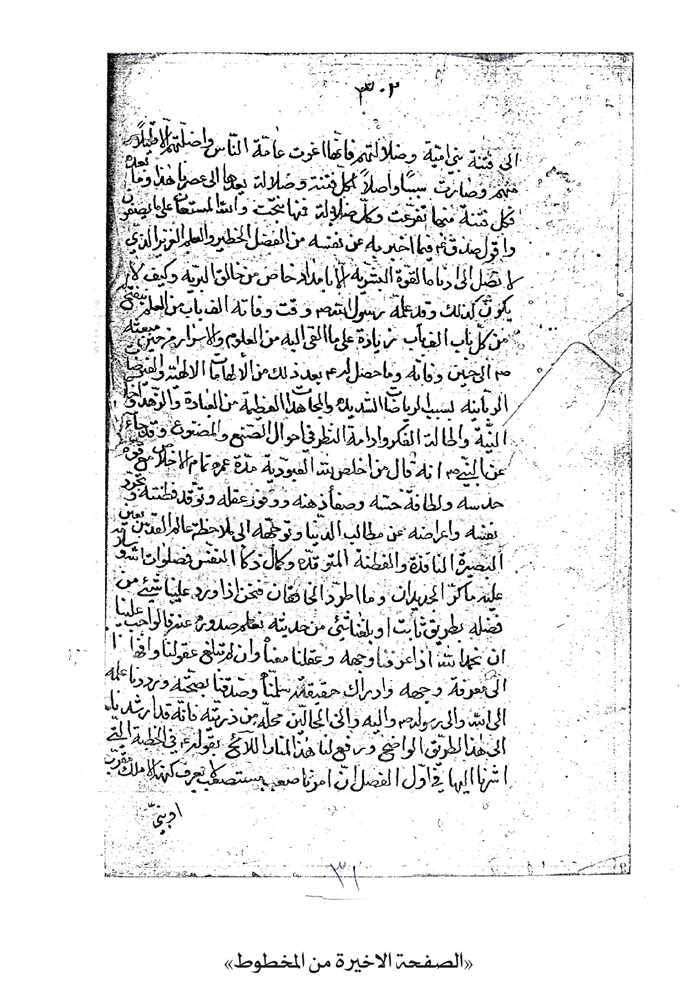 ٣٠٢
الى فتنة بني امية وضلالتهم فانها اغوت عامة الناس واضلتهم الا قليلاً
منهم وصارت سبباً واصلاً لكل فتنة وضلالة بعدها الى عصرنا هذا وما بعده
فكل فتنة منها تفرعت وكل ضلالة فيها نتجت والله المستعان على ما يصفون
واقول صدق ع فيما اخبر به عن نفسه من الفضل الخطير والعلم الغزير الذي
لا تصل الى ادناه القوة البشرية الا بامداد خاص من خالق البرية وكيف لا
يكون كذلك وقد علمه رسول الله ص وقت وفاته الف باب من العلم يفتح
من كل باب الف باب زيادة على ما القى اليه من العلوم والاسرار من حين مبعثه
ص الى حين وفاته وما حصل له ع بعد ذلك من الالهامات الالهية والفيوضات
الربانية بسبب الرياضات الشديدة والمجاهدات العظيمة من العبادة والزهد واخلاص
النية واطالة الفكر وادامة النظر في احوال الصنع والمصنوع وقد جاء
عن النبي ص انه قال من اخلص لله العبودية مدة عمره تمام الاخلاص مع قوة
حدسه ولطافة حسه وصفاء ذهنه ووفور عقله وتوقد فطنته وتجرد
نفسه واعراضه عن مطالب الدنيا وتوجهه الى ملاحظة عالم القدس بعين
البصيرة النافذة والفطنة المتوقدة وكمال ذكاء النفس فصلوات الله وسلامه
عليه ما كر الجديدان وما اطرد الخافقان فنحن اذا ورد علينا شيء من
فضله بطريق ثابت او بلغنا شيء من حديثه نعلم صدوره عنه فالواجب علينا
ان نحمد الله اذا عرفنا وجهه وعقلنا معناه وان لم تبلغ عقولنا وافهامنا
الى معرفة وجهه وادراك حقيقته سلمنا وصدقنا بصحته ورددنا علمه
الى الله والى رسوله ص واليه والى الحالين محله من ذريته فانه قد ارشدنا
الى هذا الطريق الواضح ورفع لنا هذا المنار اللائح بقوله ع في الخطبة التي
اشرنا اليها في اول الفصل ان امرنا صعب مستصعب لا يعرف كنهه الا ملك مقرب
او نبي
٣١
«الصفحة الاخيرة من المخطوط»